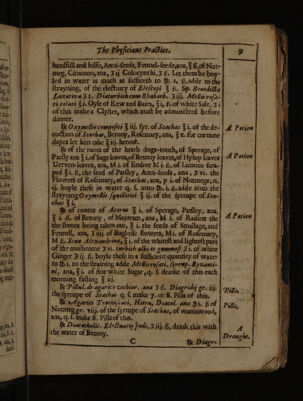 The Physicians Practice. 9
handfull and halfe, Anni-seeds, Fennel-seede, ana, ℥ ß. of Nut-
meg, Cinamon, ana, ʒ ij Colocynthi, ʒ ß. Let them be boy-
led in water as much as sufficeth to ℔ 1. ß. adde to the
strayning, of the electuary of ℥ ß. Sp. Benedicta
Laxativa ʒ i. Diacatholicon Rhubarb. ʒ iij. Mellis rosa-
ti colati ℥ i. Oyle of Rew and Bayes, ℥ i, ß. of white Salt, ʒ i
of this make a Clyster, which must be administred before
dinner.
℞ Oxymellis compositi ℥ iij. syr. of Stœchas ℥ i. of the de-
coction of Stœchas, Betony, Rosemary, ana, ℥ x. for certaine
dayes let him take ℥ iij. hereof.
A Potion
℞ of the roots of the hearb dogs-tooth, of Sperage, of
Parsly ana ʒ i. of Sage leaves, of Betony leaves, of Hysop leaves
Verven-leaves, ana, M i. of Endive M i. ß. of Licorice scra-
ped ℥ i. ß. the seed of Parsley, Anni-seeds, ana, ʒ vi. the
Flowers of Rosemary, of Stœchas, ana, p i. of Nutmegs, n.
ij. boyle these in water q. s. unto ℔ i. ß. adde unto the
strayning Oxymellis squillitici ℥ ij. of the syrrupe of Stœ-
chas ℥ i.
A Potion
℞ of rootes of Acorus ℥ i. of Sperage, Parsley, ana,
℥ i. ß. of Betony, of Majoram, ana, M i. of Raisins the
stones being taken out, ℥ i. the seeds of Smallage, and
Fennell, ana, ʒ iij of Buglosse flowers, M i. of Rosemary,
M ß. Senæ Alexandrinæ, ℥ i. of the whitest and lightest part
of the mushrome ʒ ii. turbith albi et gummosi ʒ i. of white
Ginger ℈ ij ß. boyle these in a sufficient quantity of water
to ℔ i. to the straining adde Mellis rosati, syrrup. Byzanti-
ni, ana, ℥ i. of fine white Sugar, q. s. drinke of this each
morning fasting ℥ iij.
A Potion
℞ Pillul. de agarico cochiar. ana ʒ ß. Diagridij gr. iij.
the syrrupe of Stœchas q. s. make 7. or 8. Pills of this.
Pills,
℞ Agarici Trociscati, Hiera, ana ℈ i. ß. of
Nutmeg gr. viij. of the syrrupe of Stœchas, of wormwood,
ana, q. s. make 8. Pills of this.
Pills,
℞ Diacatholic. Electuarij Indi, ʒ iij. ß. drink this with
the water of Betony.
A
Draught.
C ℞ Diagr-